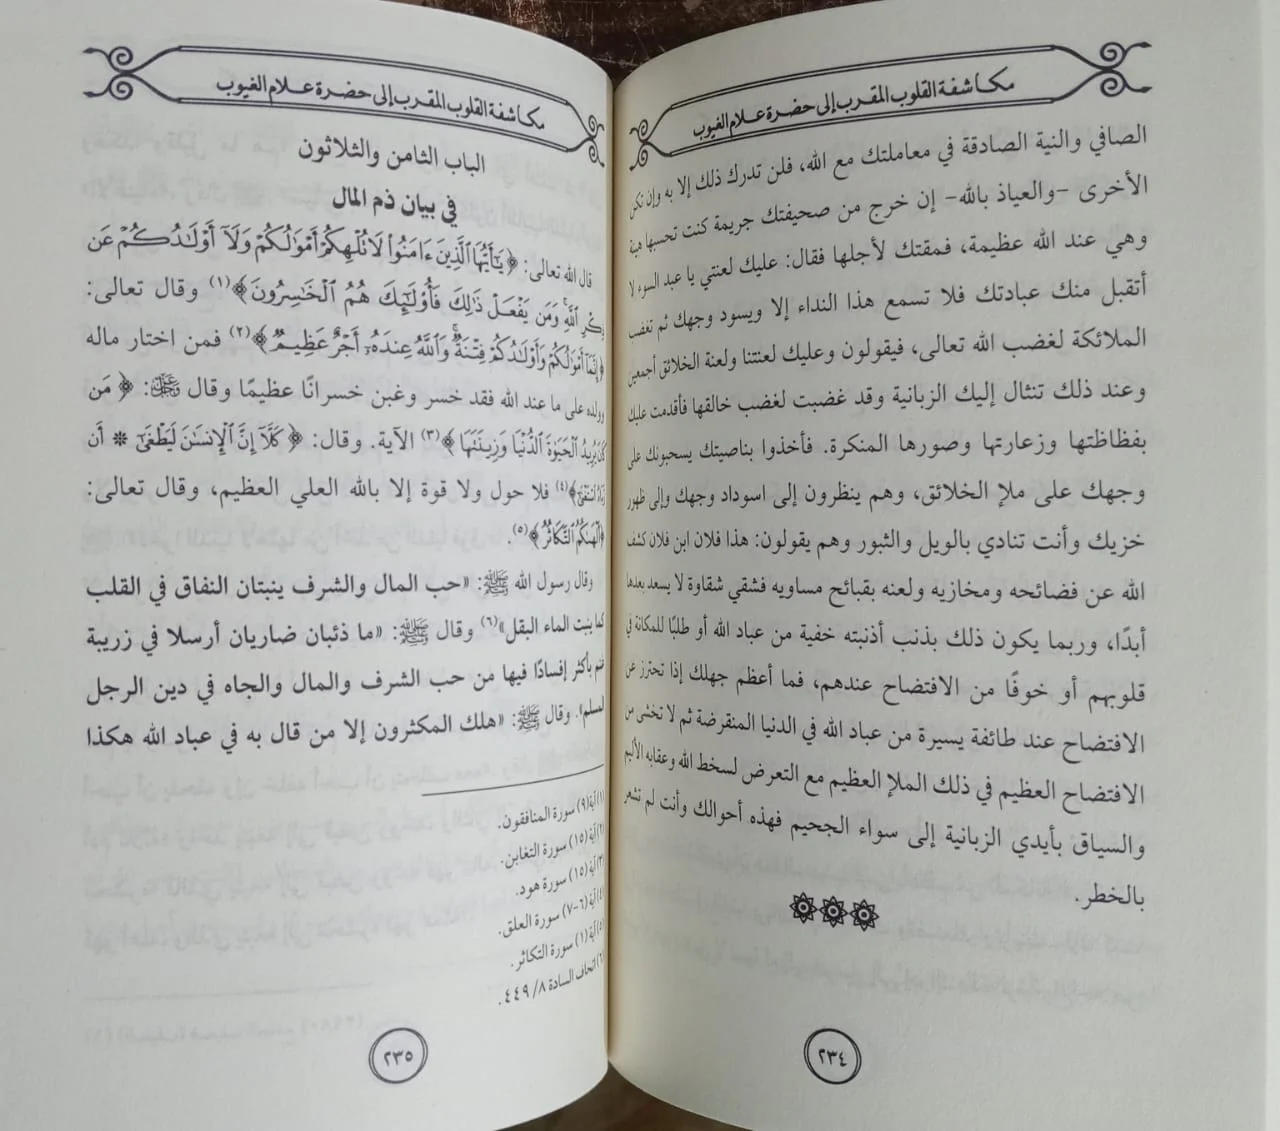 مكاشفة القلوب المقرب إلى حضرة علام الغيوب
الصافي والنية الصادقة في معاملتك مع الله، فلن تدرك ذلك إلا به وإن تكن
الأخرى -والعياذ بالله- إن خرج من صحيفتك جريمة كنت تحسبها هينة
وهي عند الله عظيمة، فمقتك لأجلها فقال: عليك لعنتي يا عبد السوء لا
أتقبل منك عبادتك فلا تسمع هذا النداء إلا ويسود وجهك ثم تغضب
الملائكة لغضب الله تعالى، فيقولون وعليك لعنتنا ولعنة الخلائق أجمعين
وعند ذلك تنثال إليك الزبانية وقد غضبت لغضب خالقها فأقدمت عليك
بفظاظتها وزعارتها وصورها المنكرة. فأخذوا بناصيتك يسحبونك على
وجهك على ملإ الخلائق، وهم ينظرون إلى اسوداد وجهك وإلى ظهور
خزيك وأنت تنادي بالويل والثبور وهم يقولون: هذا فلان ابن فلان كشف
الله عن فضائحه ومخازيه ولعنه بقبائح مساويه فشقي شقاوة لا يسعد بعدها
أبدًا، وربما يكون ذلك بذنب أذنبته خفية من عباد الله أو طلبًا للمكانة في
قلوبهم أو خوفًا من الافتضاح عندهم، فما أعظم جهلك إذا تحترز عن
الافتضاح عند طائفة يسيرة من عباد الله في الدنيا المنقرضة ثم لا تخشى من
الافتضاح العظيم في ذلك الملإ العظيم مع التعرض لسخط الله وعقابه الأليم
والسياق بأيدي الزبانية إلى سواء الجحيم فهذه أحوالك وأنت لم تشعر
بالخطر.
٢٣٤
مكاشفة القلوب المقرب إلى حضرة علام الغيوب
الباب الثامن والثلاثون
في بيان ذم المال
قال الله تعالى: ﴿يَٰٓأَيُّهَا ٱلَّذِينَ ءَامَنُوا۟ لَا تُلْهِكُمْ أَمْوَٰلُكُمْ وَلَآ أَوْلَٰدُكُمْ عَن
ذِكْرِ ٱللَّهِ ۚ وَمَن يَفْعَلْ ذَٰلِكَ فَأُو۟لَٰٓئِكَ هُمُ ٱلْخَٰسِرُونَ﴾(١) وقال تعالى:
﴿إِنَّمَآ أَمْوَٰلُكُمْ وَأَوْلَٰدُكُمْ فِتْنَةٌ ۚ وَٱللَّهُ عِندَهُۥٓ أَجْرٌ عَظِيمٌ﴾(٢) فمن اختار ماله
وولده على ما عند الله فقد خسر وغبن خسرانًا عظيمًا وقال ﷻ: ﴿ مَن
كَانَ يُرِيدُ ٱلْحَيَوٰةَ ٱلدُّنْيَا وَزِينَتَهَا ﴾(٣) الآية. وقال: ﴿ كَلَّآ إِنَّ ٱلْإِنسَٰنَ لَيَطْغَىٰٓ * أَن
رَّءَاهُ ٱسْتَغْنَىٰٓ﴾(٤) فلا حول ولا قوة إلا بالله العلي العظيم، وقال تعالى:
﴿أَلْهَىٰكُمُ ٱلتَّكَاثُرُ﴾(٥).
وقال رسول الله ﷺ: «حب المال والشرف ينبتان النفاق في القلب
كما ينبت الماء البقل»(٦) وقال ﷺ: «ما ذئبان ضاريان أرسلا في زريبة
غنم بأكثر إفسادًا فيها من حب الشرف والمال والجاه في دين الرجل
المسلم». وقال ﷺ: «هلك المكثرون إلا من قال به في عباد الله هكذا
(١) آية (٩) سورة المنافقون.
(٢) آية (١٥) سورة التغابن.
(٣) آية (١٥) سورة هود.
(٤) آية (٦-٧) سورة العلق.
(٥) آية (١) سورة التكاثر.
(٦) اتحاف السادة ٨/ ٤٤٩.
٢٣٥